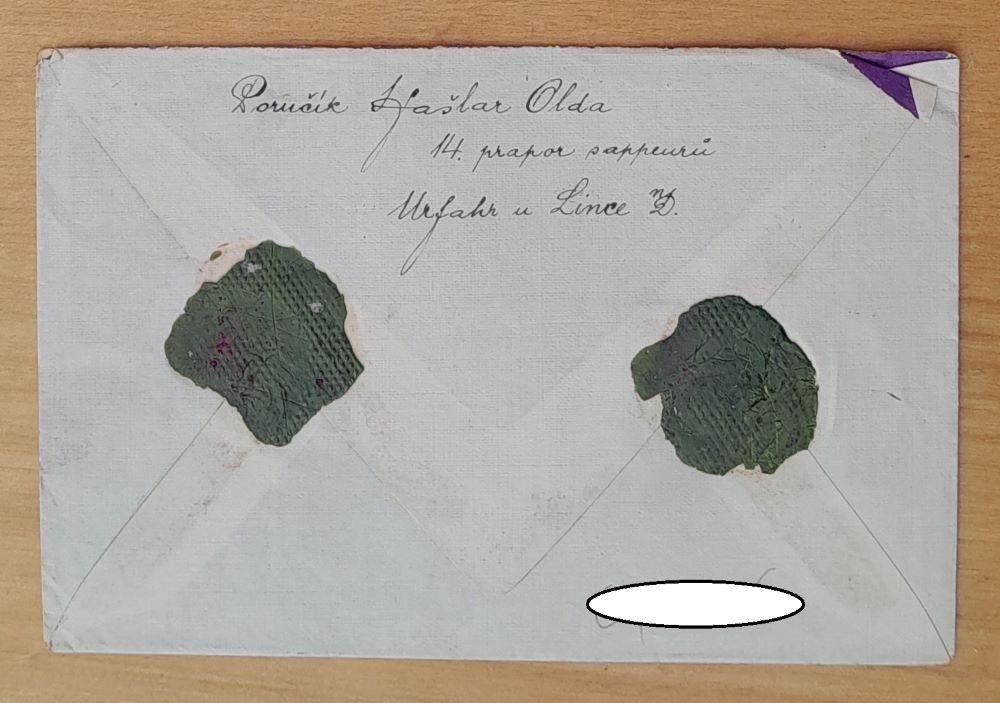 Poručík Hašlar Olda
14. prapor sappeurů
Urfahr u Lince n/D.